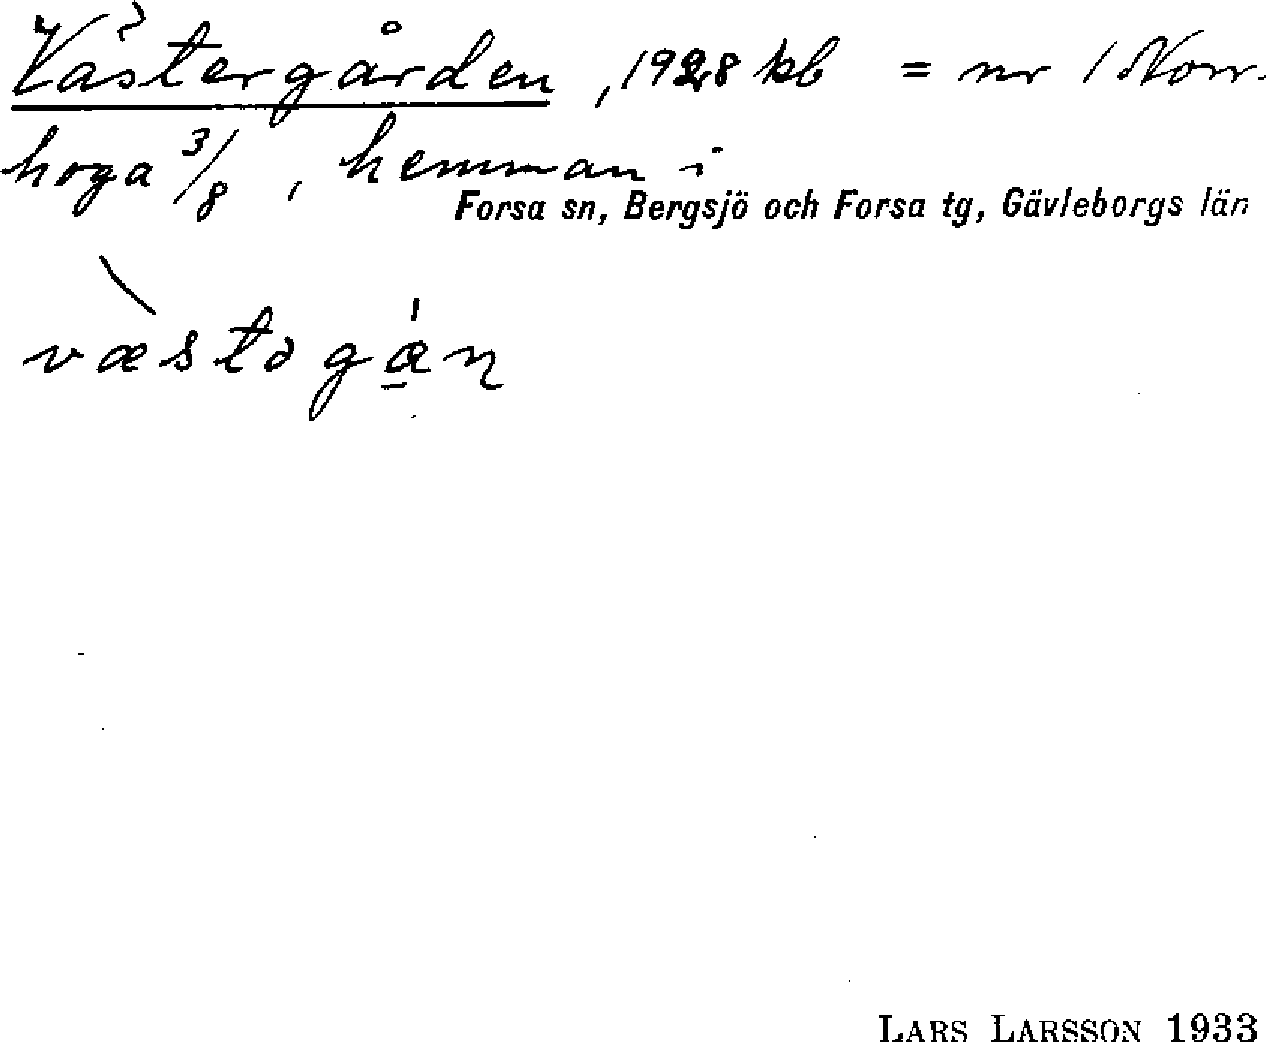 Västergården, 1928 kb = nr 1 Norr-
hoga 3/8, hemman i
Forsa sn, Bergsjö och Forsa tg, Gävleborgs län
væ̀stəgá̱ɳ
LARS LARSSON 1933